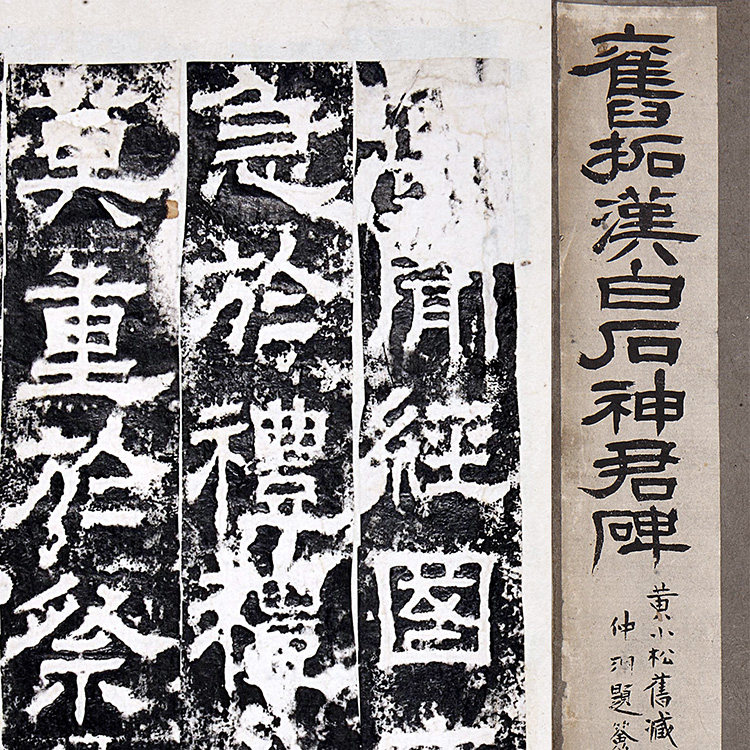 舊拓漢白石神君碑
黄小松舊藏
仲題簽
聞經國
急於禮禮
莫重於祭